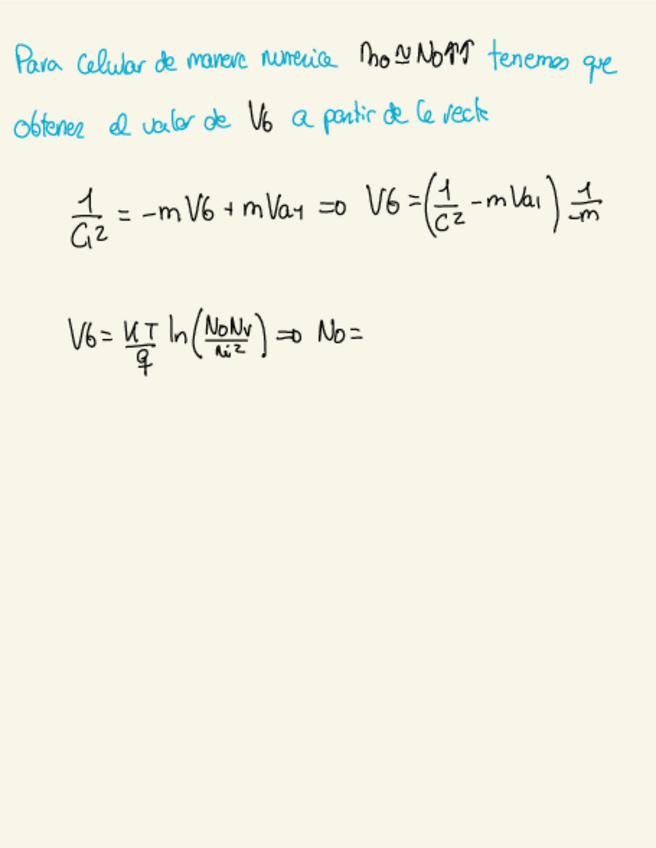 Para Calular de manera numerica no ≃ No↑↑ tenemos que
obtener el valor de V6 a partir de la recta
1/C1² = -mV6 + mVa1 => V6 = (1/C² - mVa1) 1/-m
V6 = KT/q ln(NoNv/ni²) => No =